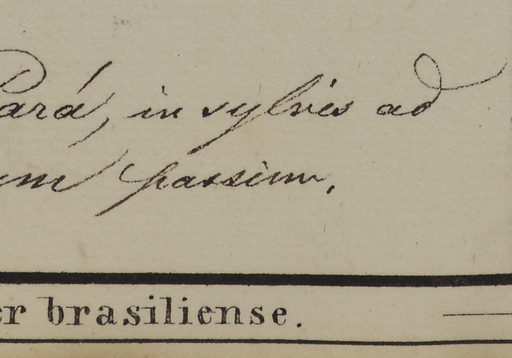 Pará, in sylvis ad
um passim.
er brasiliense.